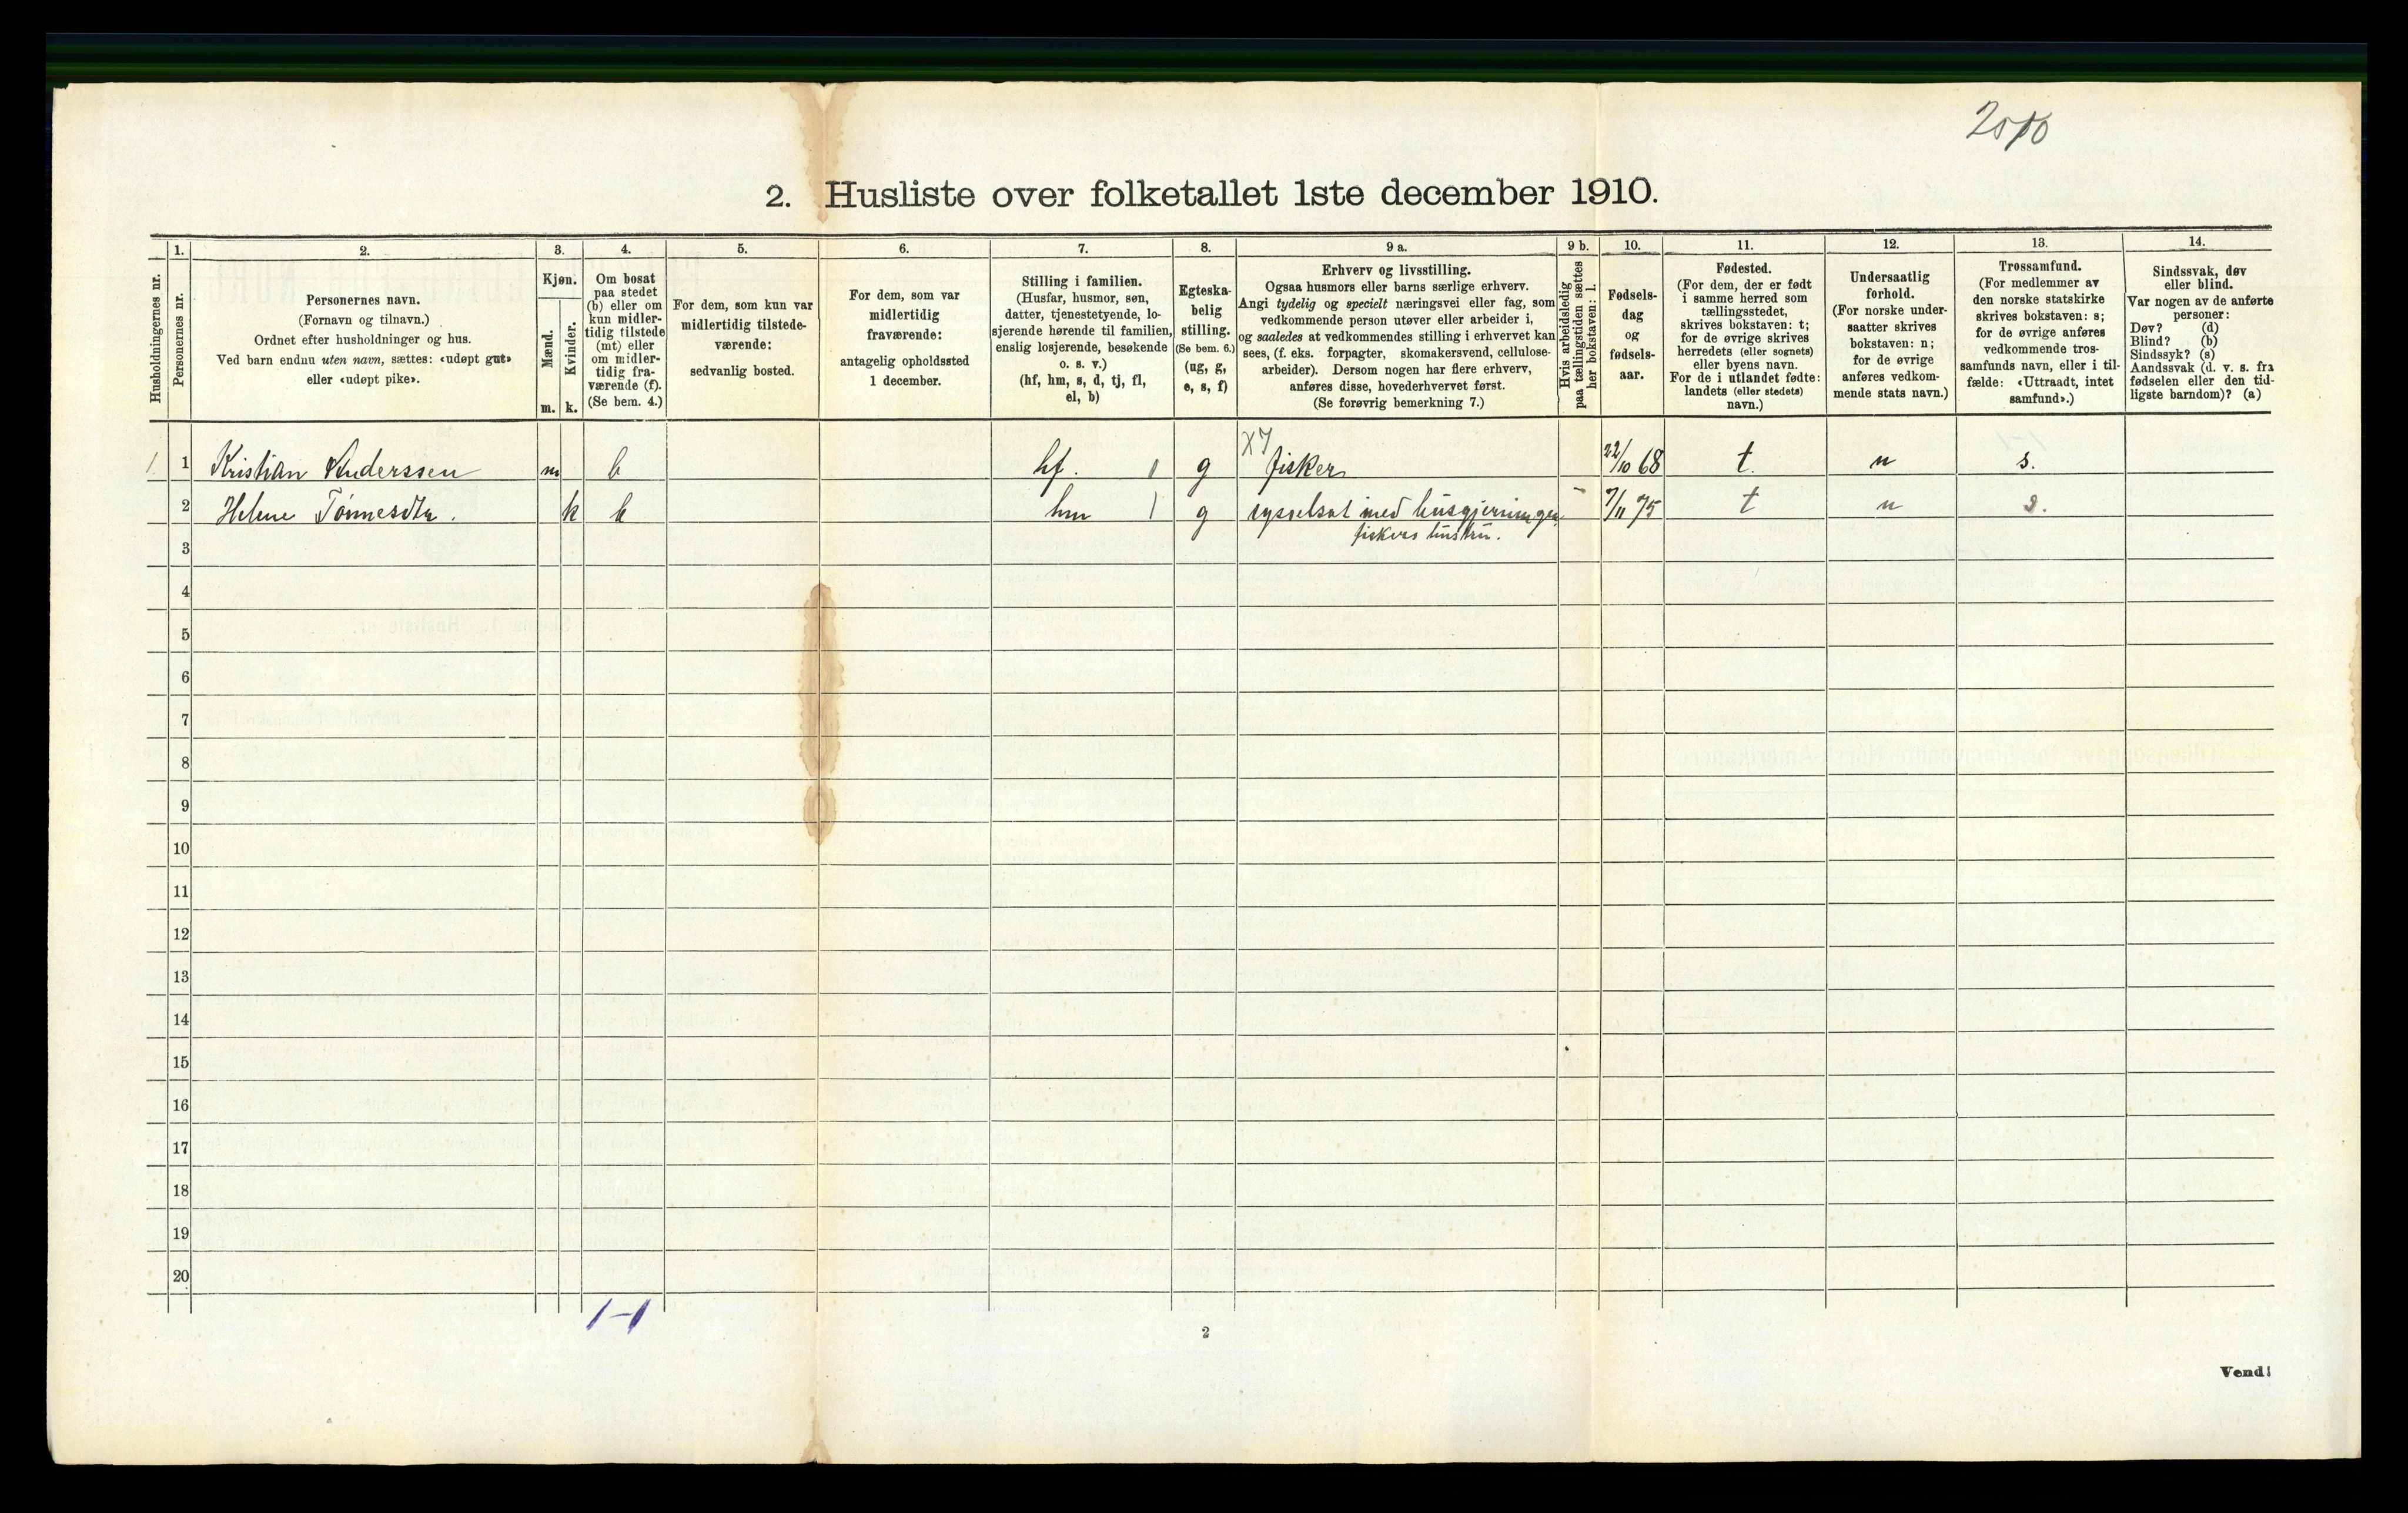 2. Husliste over folketallet 1ste december 1910.
Husholdningernes nr.
1.
Personernes nr.
2.
Personernes navn.
(Fornavn og tilnavn.)
Ordnet efter husholdninger og hus.
Ved barn endnu uten navn, sættes: «udøpt gut»
eller «udøpt pike».
3.
Kjøn.
Mænd.
Kvinder.
m. k.
4.
Om bosat
paa stedet
(b) eller om
kun midler-
tidig tilstede
(mt) eller
om midler-
tidig fra-
værende (f).
(Se bem. 4.)
5.
For dem, som kun var
midlertidig tilstede-
værende:
sedvanlig bosted.
6.
For dem, som var
midlertidig
fraværende:
antagelig opholdssted
1 december.
7.
Stilling i familien.
(Husfar, husmor, søn,
datter, tjenestetyende, lo-
sjerende hørende til familien,
enslig losjerende, besøkende
o. s. v.)
(hf, hm, s, d, tj, fl,
el, b)
8.
Egteska-
belig
stilling.
(Se bem. 6.)
(ug, g,
e, s, f)
9 a.
Erhverv og livsstilling.
Ogsaa husmors eller barns særlige erhverv.
Angi tydelig og specielt næringsvei eller fag, som
vedkommende person utøver eller arbeider i,
og saaledes at vedkommendes stilling i erhvervet kan
sees, (f. eks. forpagter, skomakersvend, cellulose-
arbeider). Dersom nogen har flere erhverv,
anføres disse, hovederhvervet først.
(Se forøvrig bemerkning 7.)
9 b.
Hvis arbeidsledig
paa tællingstiden sættes
her bokstaven: l.
10.
Fødsels-
dag
og
fødsels-
aar.
11.
Fødested.
(For dem, der er født
i samme herred som
tællingsstedet,
skrives bokstaven: t;
for de øvrige skrives
herredets (eller sognets)
eller byens navn.
For de i utlandet fødte:
landets (eller stedets)
navn.)
12.
Undersaatlig
forhold.
(For norske under-
saatter skrives
bokstaven: n;
for de øvrige
anføres vedkom-
mende stats navn.)
13.
Trossamfund.
(For medlemmer av
den norske statskirke
skrives bokstaven: s;
for de øvrige anføres
vedkommende tros-
samfunds navn, eller i til-
fælde: «Uttraadt, intet
samfund».)
14.
Sindssvak, døv
eller blind.
Var nogen av de anførte
personer:
Døv? (d)
Blind? (b)
Sindssyk? (s)
Aandssvak (d. v. s. fra
fødselen eller den tid-
ligste barndom)? (a)
1. 1 Kristian Anderssen m b hf. g X7 fisker 22/10 68 t. n s.
2 Helene Tønnesdtr. k b hm 1 g sysselsat med husgjerningen 7/11 75 t n s.
fiskers hustru.
3
4
5
6
7
8
9
10
11
12
13
14
15
16
17
18
19
20
1-1
2
Vend!